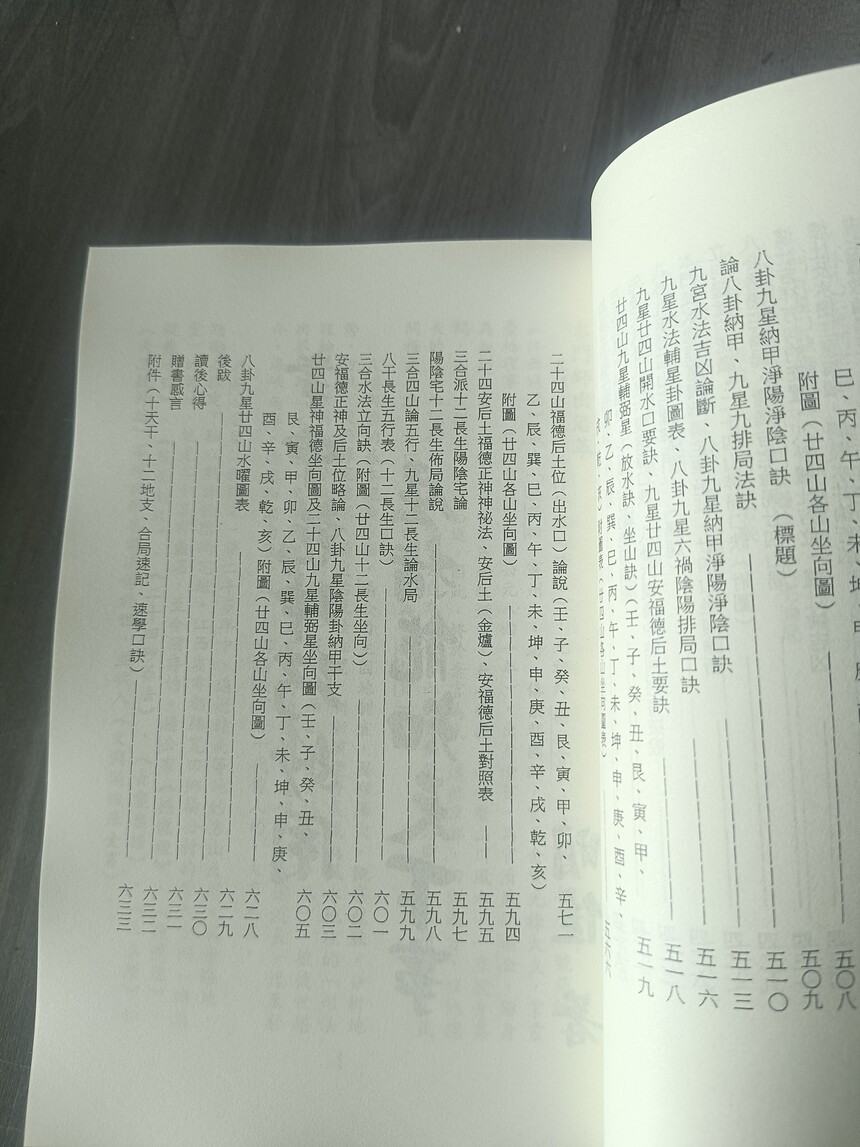 巳、丙、午、丁、未、坤、申、庚、
附圖（廿四山各山坐向圖） 五〇八
八卦九星納甲淨陽淨陰口訣（標題） 五〇九
論八卦納甲、九星九排局法訣 五一〇
九宮水法吉凶論斷、八卦九星納甲淨陽淨陰口訣 五一三
九星水法輔星卦圖表、八卦九星六禍陰陽排局口訣 五一六
九星廿四山開水口要訣、九星廿四山安福德后土要訣 五一八
廿四山九星輔弼星（放水訣、坐山訣）（壬、子、癸、丑、艮、寅、甲、 五一九
卯、乙、辰、巽、巳、丙、午、丁、未、坤、申、庚、酉、辛、
戌、乾、亥）附圖表（廿四山各山坐向圖表） 五六六
二十四山福德后土位（出水口）論說（壬、子、癸、丑、艮、寅、甲、卯、 五七一
乙、辰、巽、巳、丙、午、丁、未、坤、申、庚、酉、辛、戌、乾、亥）
附圖（廿四山各山坐向圖） 五九四
二十四安后土福德正神神祕法、安后土（金爐）、安福德后土對照表 五九五
三合派十二長生陽陰宅論 五九七
陽陰宅十二長生佈局論說 五九八
三合四山論五行、九星十二長生論水局 五九九
八干長生五行表（十二長生口訣） 六〇一
三合水法立向訣（附圖（廿四山十二長生坐向）） 六〇二
安福德正神及后土位略論、八卦九星陰陽卦納甲干支 六〇三
廿四山星神福德坐向圖及二十四山九星輔弼星坐向圖（壬、子、癸、丑、 六〇五
艮、寅、甲、卯、乙、辰、巽、巳、丙、午、丁、未、坤、申、庚、
酉、辛、戌、乾、亥）附圖（廿四山各山坐向圖） 六二八
八卦九星廿四山水曜圖表 六二九
後跋 六三〇
讀後心得 六三一
贈書感言 六三二
附件（十天干、十二地支、合局速記、速學口訣） 六三三